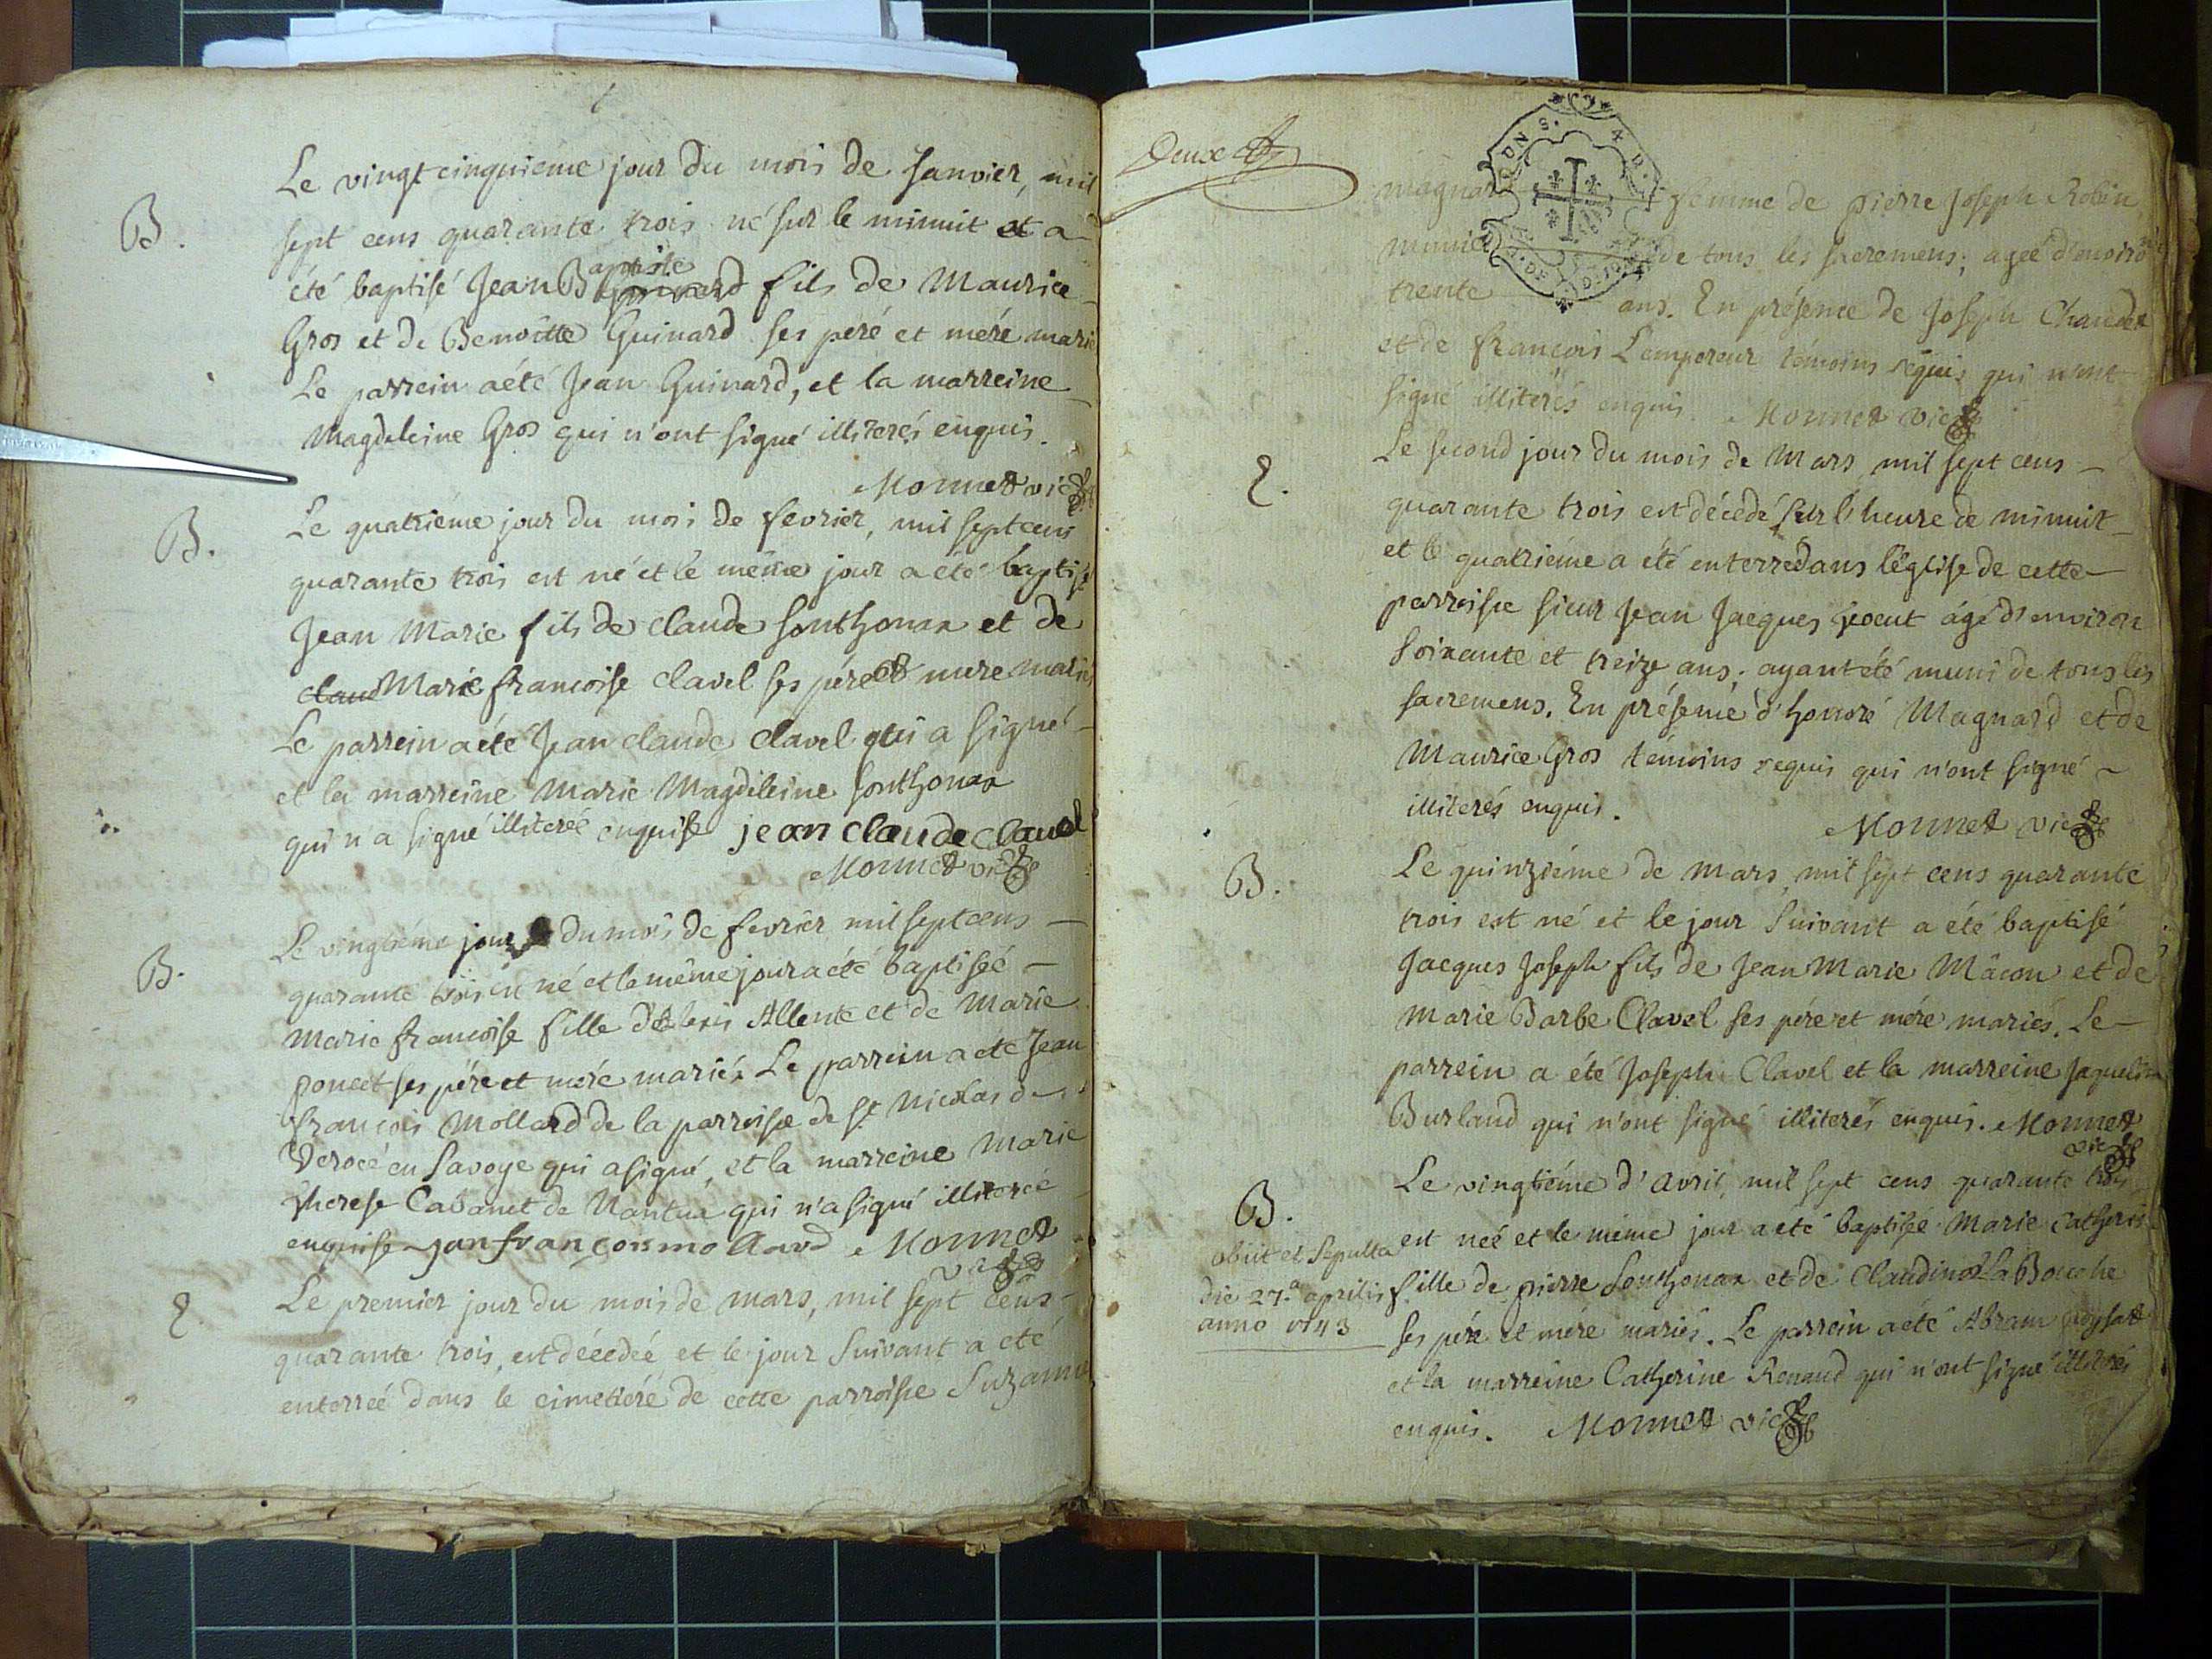 B.
Le vingt cinquieme jour du mois de Janvier, mil
sept cens quarante trois né sur le minuit et a
été baptisé Jean Baptiste fils de Maurice
Gros et de Benoitte Guinard ses peré et meré marié
Le parrein a été Jean Guinard, et la marreine
Magdeleine Gros qui n'ont signé illiterés enquis.
Monnet vic
B.
Le quatriéme jour du mois de fevrier, mil sept cens
quarante trois est né et le même jour a été baptisé
Jean Marie fils de claude Sonthonax et de
claud Marie francoise clavel ses pére et mere mariés
Le parrein a été Jean claude clavel qui a signé
et la marreine Marie Magdeleine Sonthonax
qui n a signé illiteree enquise jean claude clavel
Monnet vic
B.
Le vingtiéme jour du mois de fevrier mil sept cens
quarante trois est né et le même jour a été baptiseé
Marie francoise fille d'Alexis Allente et de Marie
poncet ses pére et mere mariés. Le parrein a eté Jean
francois Mollard de la parroisse de St Nicolas de
Veroce en Savoye qui a signé, et la marreine Marie
therese Cabanet de Nantua qui n'a signé illitereé
enquise jan francois mollard Monnet
vic
E.
Le premier jour du mois de mars, mil sept cens
quarante trois, est décedeé et le jour suivant a eté
enterreé dans le cimetieré de cette parroisse Suzanne
Deux
magnard femme de pierre Joseph Robin
munie de tous les sacremens; ageé d'environ
trente ans. En présence de Joseph Chandel
et de françois Lempereur témoins requis qui n'ont
signé illiterés enquis. Monnet vic
E.
Le second jour du mois de Mars mil sept cens
quarante trois est décédé sur l'heure de minuit
et le quatriéme a été enterré dans l'église de cette
parroisse sieur Jean Jacques jocut âgé d'environ
soixante et treize ans; ayant été muni de tous les
sacremens. En présence d'honoré Magnard et de
Maurice Gros témoins requis qui n'ont signé
illiterés enquis.
Monnet vic
B.
Le quinziéme de mars, mil sept cens quarante
trois est né et le jour suivant a été baptisé
Jacques Joseph fils de Jean Marie Mâcon et de
Marie Barbe Clavel ses pére et mére mariés. Le
parrein a été Joseph Clavel et la marreine Jaqueline
Burland qui n'ont signé illiterés enquis. Monnet
vic
B.
obiit et sepulta
die 27.a aprilis
anno 1743
Le vingtiéme d'avril, mil sept cens quarante trois
est neé et le même jour a été baptiseé Marie Catherine
fille de pierre Sonthonax et de Claudine La Bouche
ses pére et mére mariés. Le parrein a été Abram
et la marreine Catherine Renaud qui n'ont signé illiterés
enquis. Monnet vic